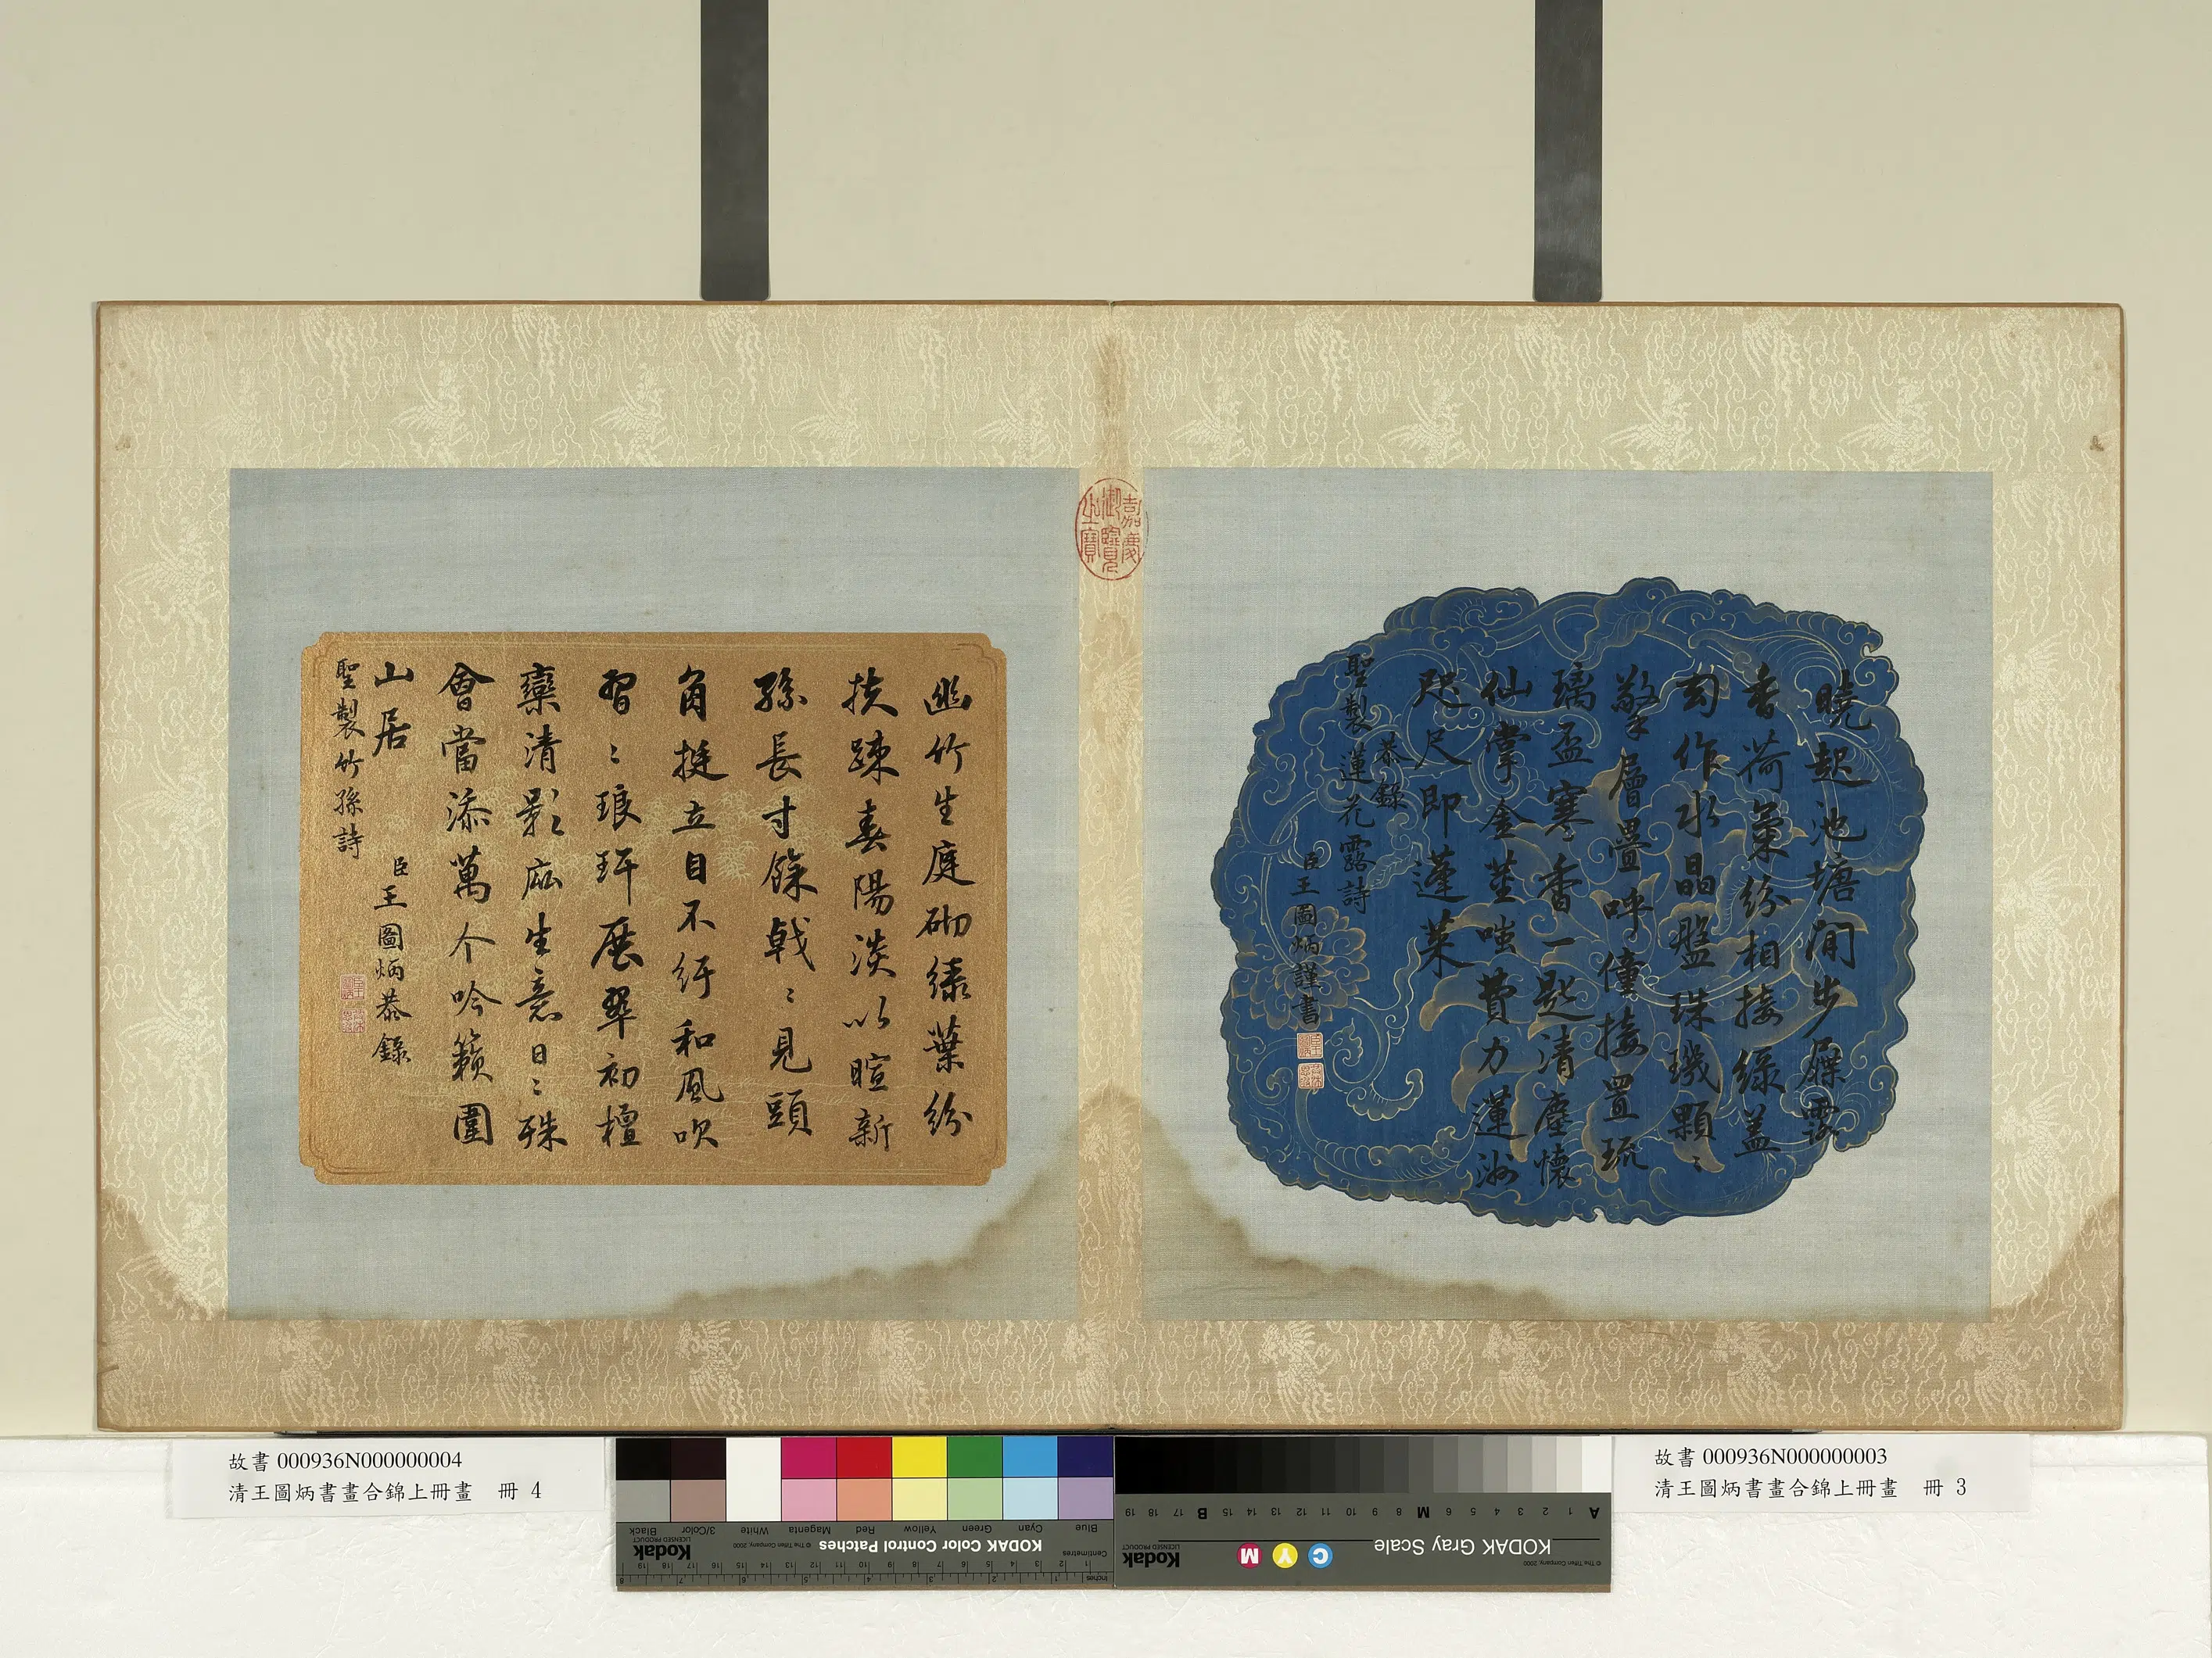 曉起池塘閒步屧露
香荷氣紛相接綠蓋
勻作水晶盤珠璣顆〻
擎層疊呼僮接置琉
璃盃寒香一匙清塵懷
仙掌金莖嗤費力蓮洲
咫尺即蓬萊
恭錄
聖製蓮花露詩
臣王圖炳謹書
嘉慶
御覽
之寶
幽竹生庭砌綠葉紛
扶踈春陽淡以暄新
孫長寸餘戟〻見頭
角挺立自不紆和風吹
習〻琅玕展翠初檀
欒清影庇生意日〻殊
會當添萬个吟籟圍
山居
臣王圖炳恭錄
聖製竹孫詩
故書 000936N000000004
清王圖炳書畫合錦上冊畫 冊 4
故書 000936N000000003
清王圖炳書畫合錦上冊畫 冊 3
KODAK Color Control Patches
Blue Cyan Green Yellow Red Magenta White 3/Color Black
Kodak
LICENSED PRODUCT
© The Tiffen Company, 2000
Centimetres
Inches
KODAK Gray Scale
C Y M
Kodak
LICENSED PRODUCT
© The Tiffen Company, 2000
A 1 2 3 4 5 6 M 8 9 10 11 12 13 14 15 B 17 18 19